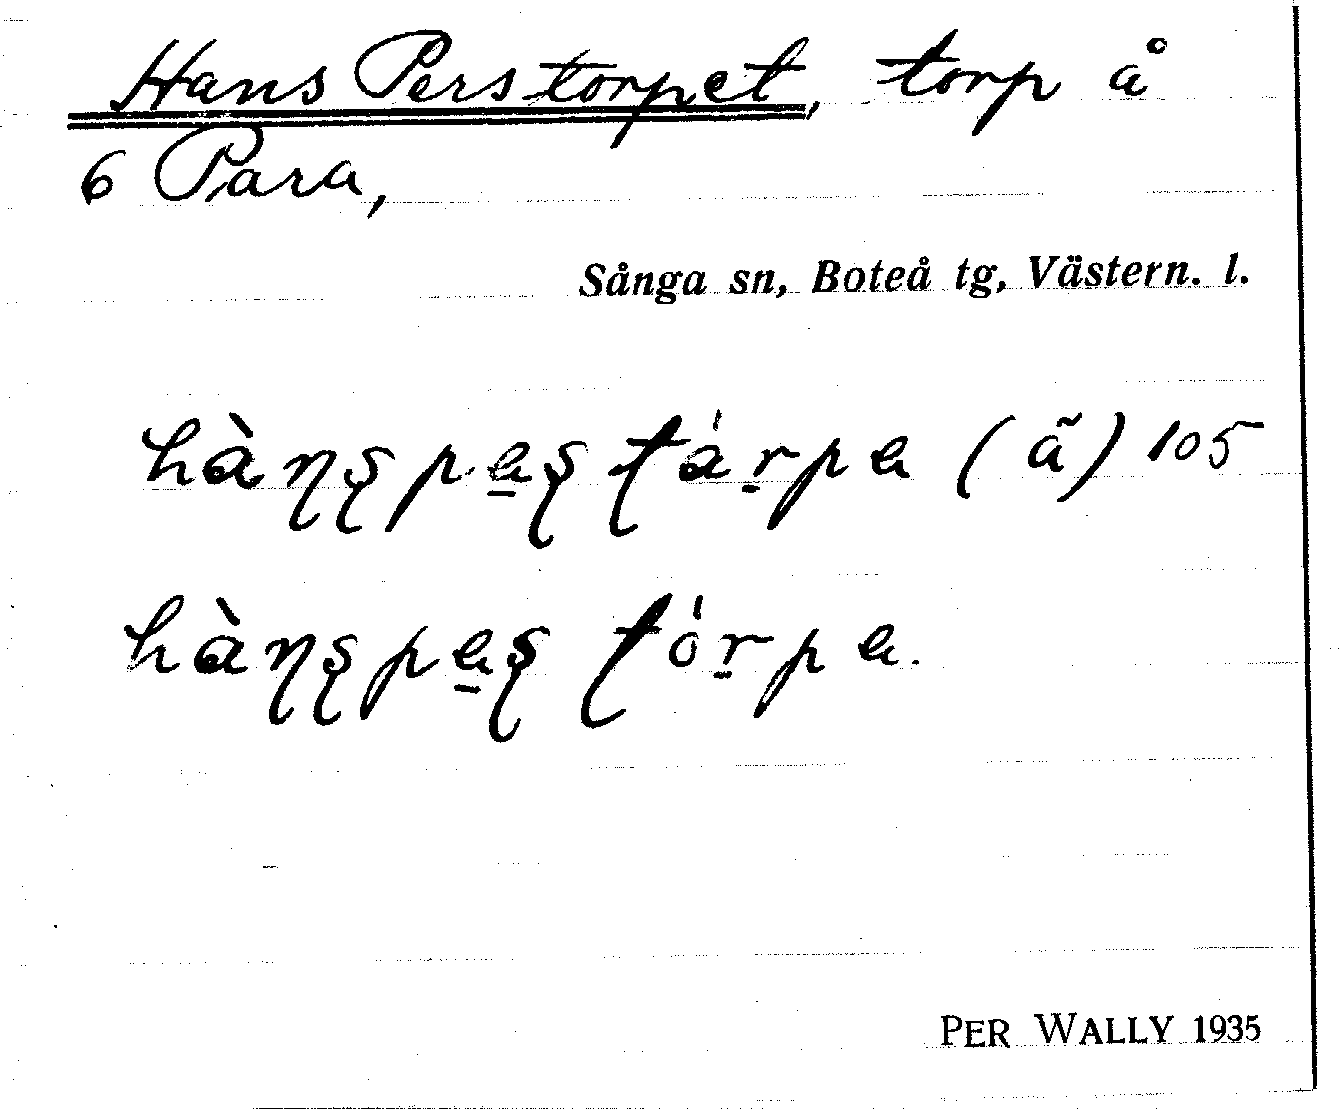 Hans Perstorpet, torp å
6 Para,
Sånga sn, Boteå tg, Västern. l.
hàɳʂpa̱ʂ ʈȧr̠pa (ã) 105
hàɳʂpa̱ʂ ʈȯr̠pa.
PER WALLY 1935